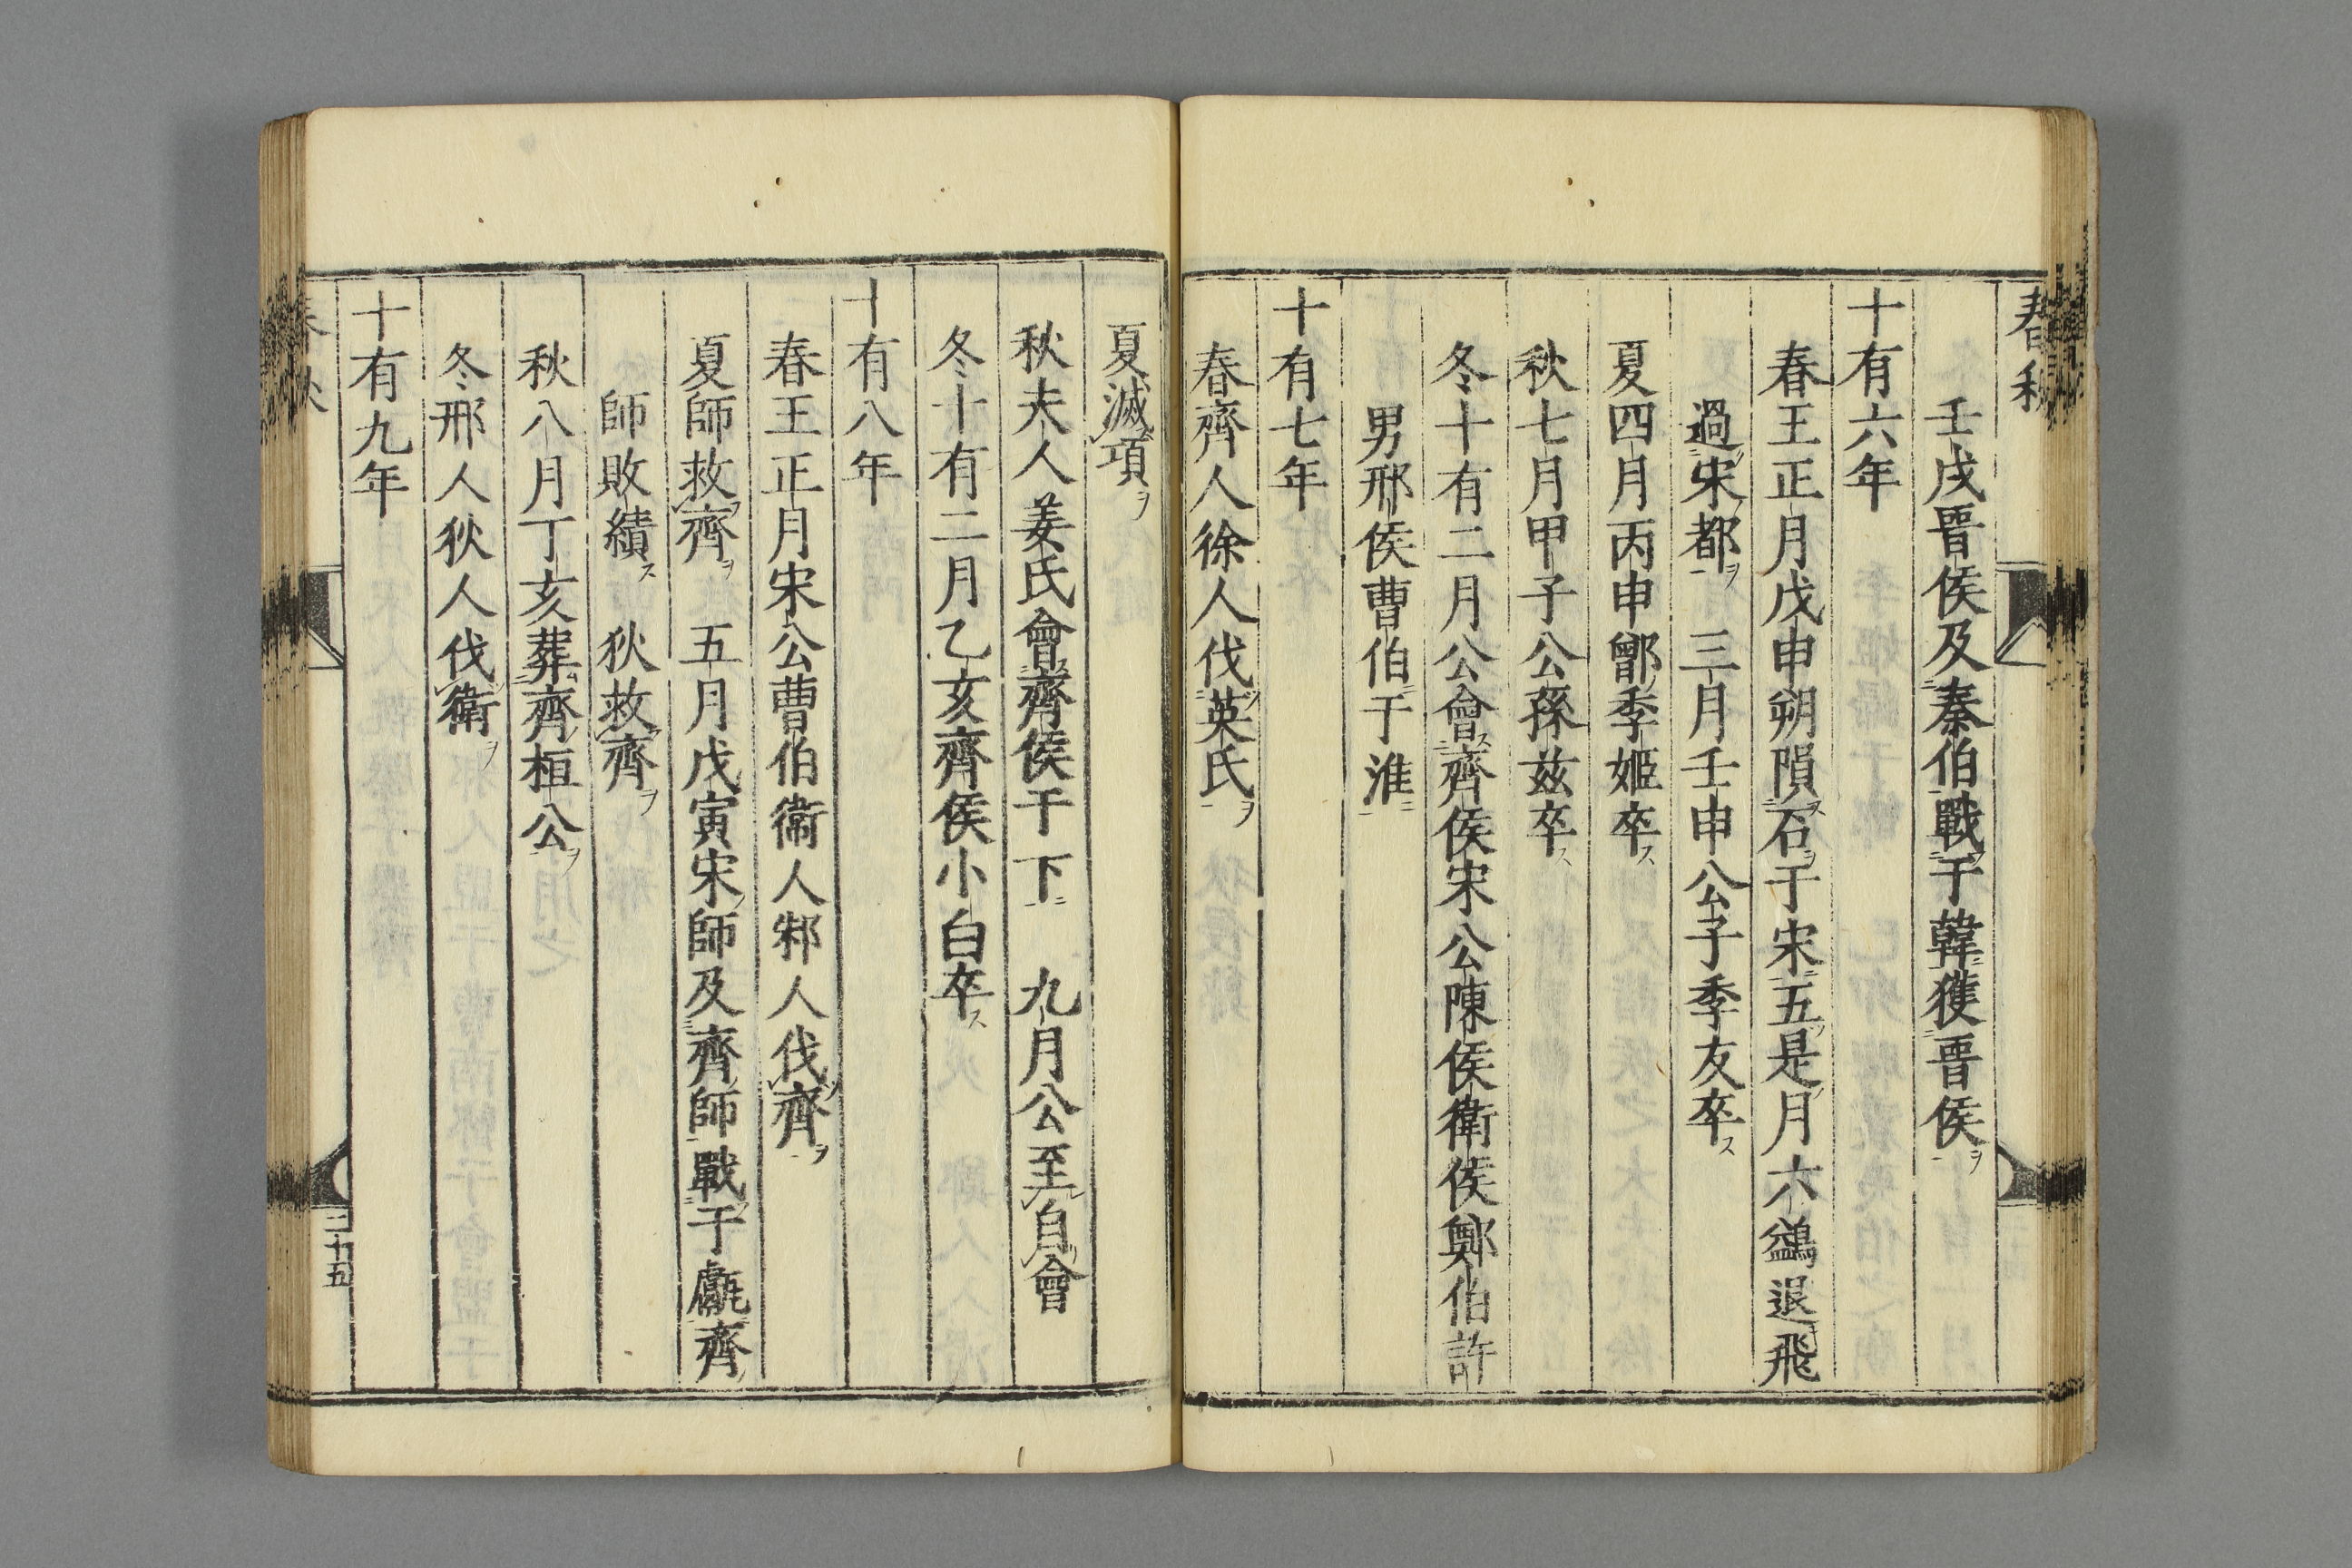 春秋
壬戌晉侯及秦伯戰于韓獲晉侯ヲ
十有六年
春王正月戊申朔隕石ヲ于宋五是月六鷁退飛
過宋都ヲ 三月壬申公子季友卒ス
夏四月丙申鄫季姬卒ス
秋七月甲子公孫玆卒ス
冬十有二月公會齊侯宋公陳侯衛侯鄭伯許
男邢侯曹伯于淮ニ
十有七年
春齊人徐人伐英氏ヲ
夏滅項ヲ
秋夫人姜氏會齊侯于下ニ 九月公至自會
冬十有二月乙亥齊侯小白卒ス
十有八年
春王正月宋公曹伯衛人邾人伐齊ヲ
夏師救齊ヲ 五月戊寅宋師及齊師戰于甗齊
師敗績ス 狄救齊ヲ
秋八月丁亥葬齊桓公ヲ
冬邢人狄人伐衛ヲ
十有九年
春秋
二十五